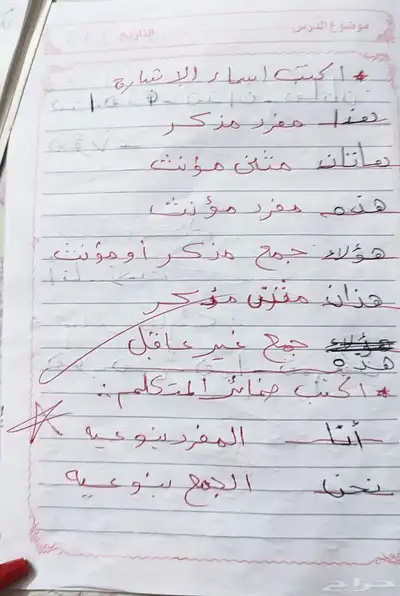 موضوع الدرس
التاريخ
* اكتب اسماء الاشارة
هذا مفرد مذكر
هاتان مثنى مؤنث
هذه مفرد مؤنث
هؤلاء جمع مذكر أو مؤنث
هذان مثنى مذكر
هؤلاء جمع غير عاقل
هذه
* اكتب ضمائر المتكلم :
أنا المفرد بنوعيه
نحن الجمع بنوعيه
حراج